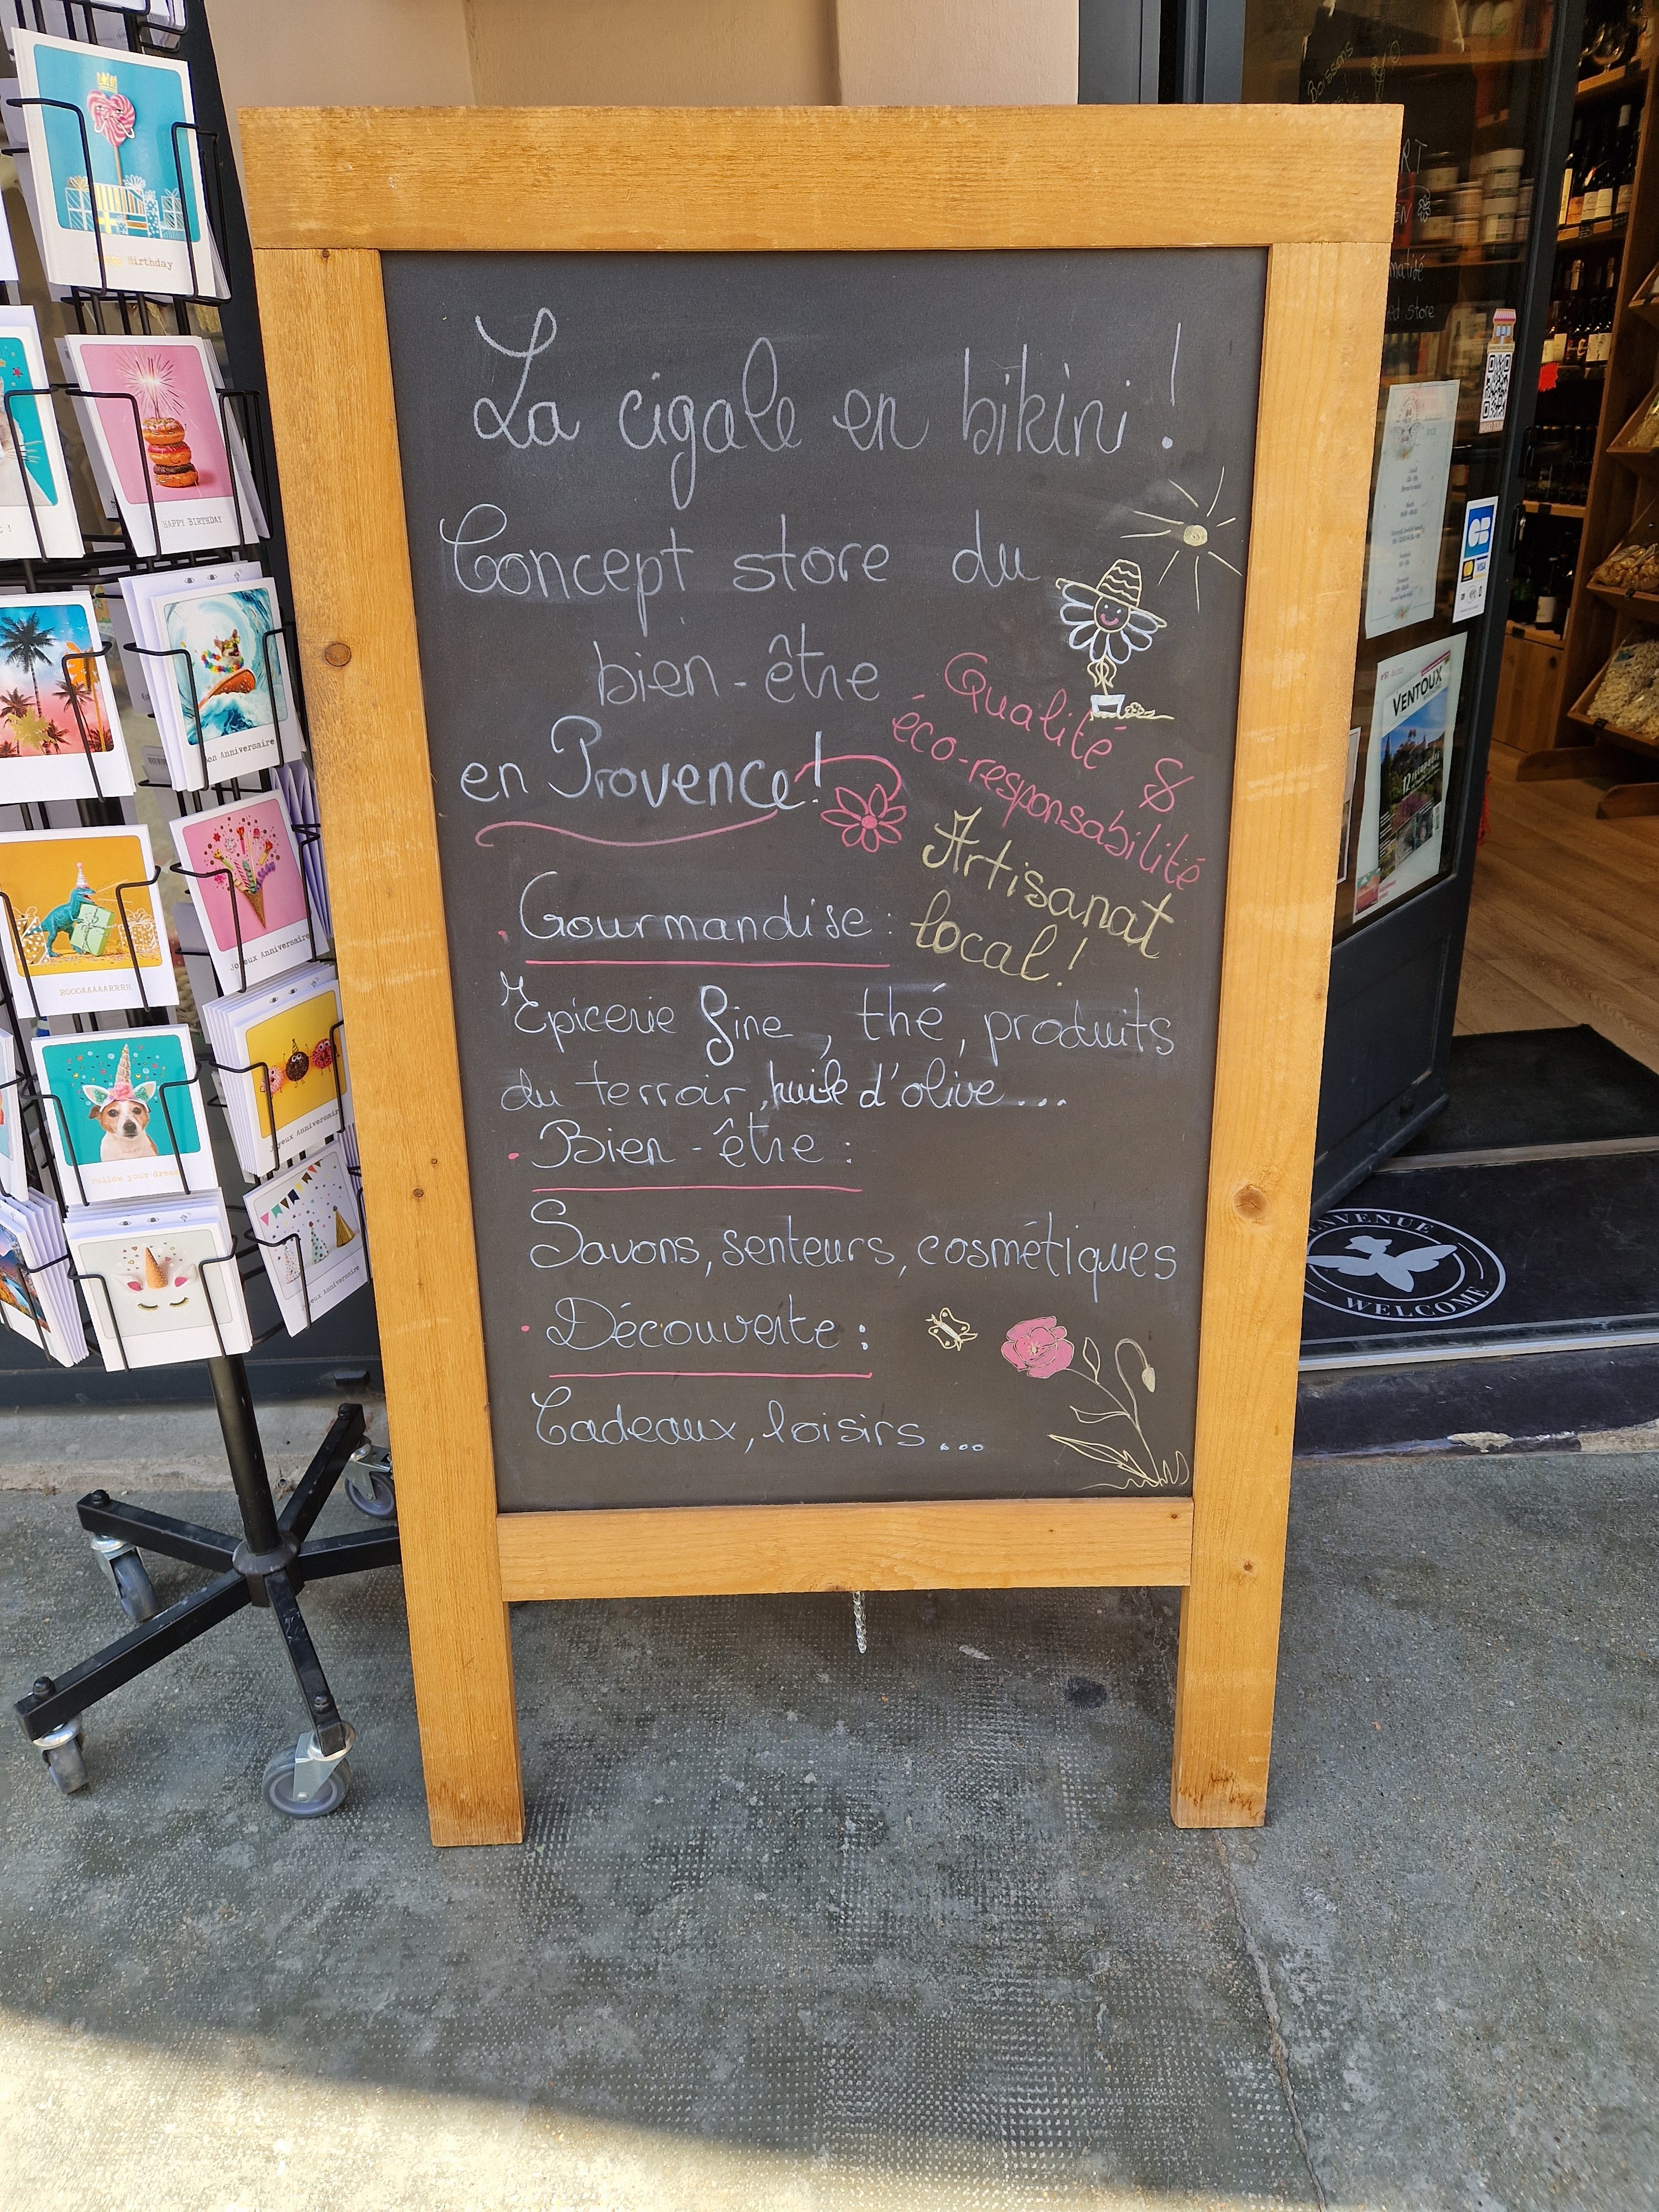 La cigale en bikini !
Concept store du
bien-être
en Provence !
Qualité &
éco-responsabilité
Artisanat
local !
· Gourmandise :
Epicerie fine, thé, produits
du terroir, huile d'olive...
· Bien-être :
Savons, senteurs, cosmétiques
· Découverte :
Cadeaux, loisirs...
Birthday
HAPPY BIRTHDAY
Bon Anniversaire
Joyeux Anniversaire
ROOOAAAAARRR!!
Follow your dreams
Joyeux Anniversaire
Joyeux Anniversaire
VENTOUX
CB
VISA
BIENVENUE
WELCOME